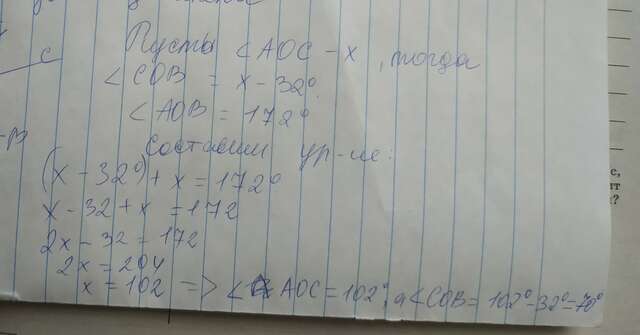 с
Пусть <AOC - x, тогда
<COB = x - 32°
<AOB = 172°
Составим ур-ие:
(x - 32°) + x = 172°
x - 32 + x = 172
2x - 32 = 172
2x = 204
x = 102 => < AOC = 102°, а <COB = 102° - 32° = 70°